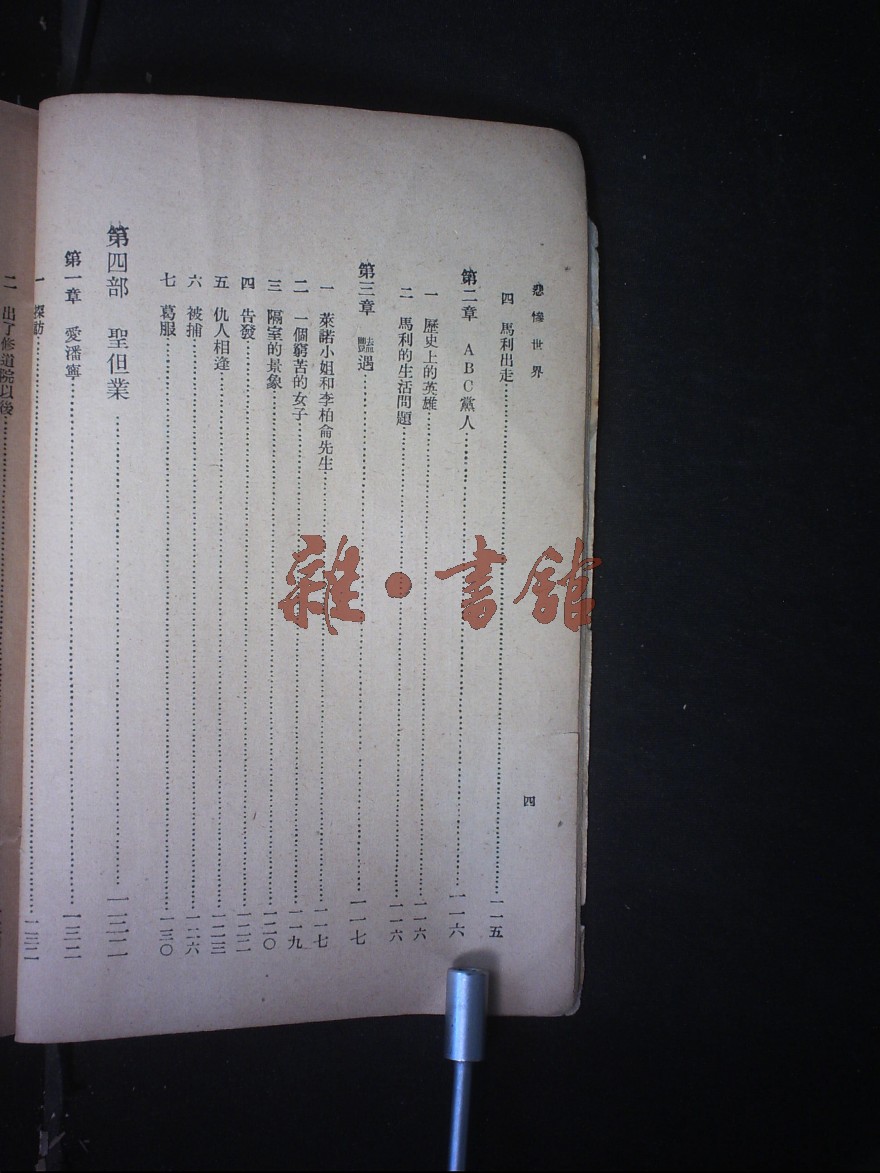 悲慘世界
四
四 馬利出走……一一五
第二章 ABC黨人……一一六
一 歷史上的英雄……一一六
二 馬利的生活問題……一一六
第三章 豔遇……一一七
一 萊諾小姐和李柏侖先生……一一七
二 一個窮苦的女子……一一九
三 隔室的景象……一二〇
四 告發……一二二
五 仇人相逢……一二三
六 被捕……一二六
七 葛服……一三〇
第四部 聖但業……一三二
第一章 愛潘寧……一三二
一 探訪……一三二
二 出了修道院以後……
雜·書館